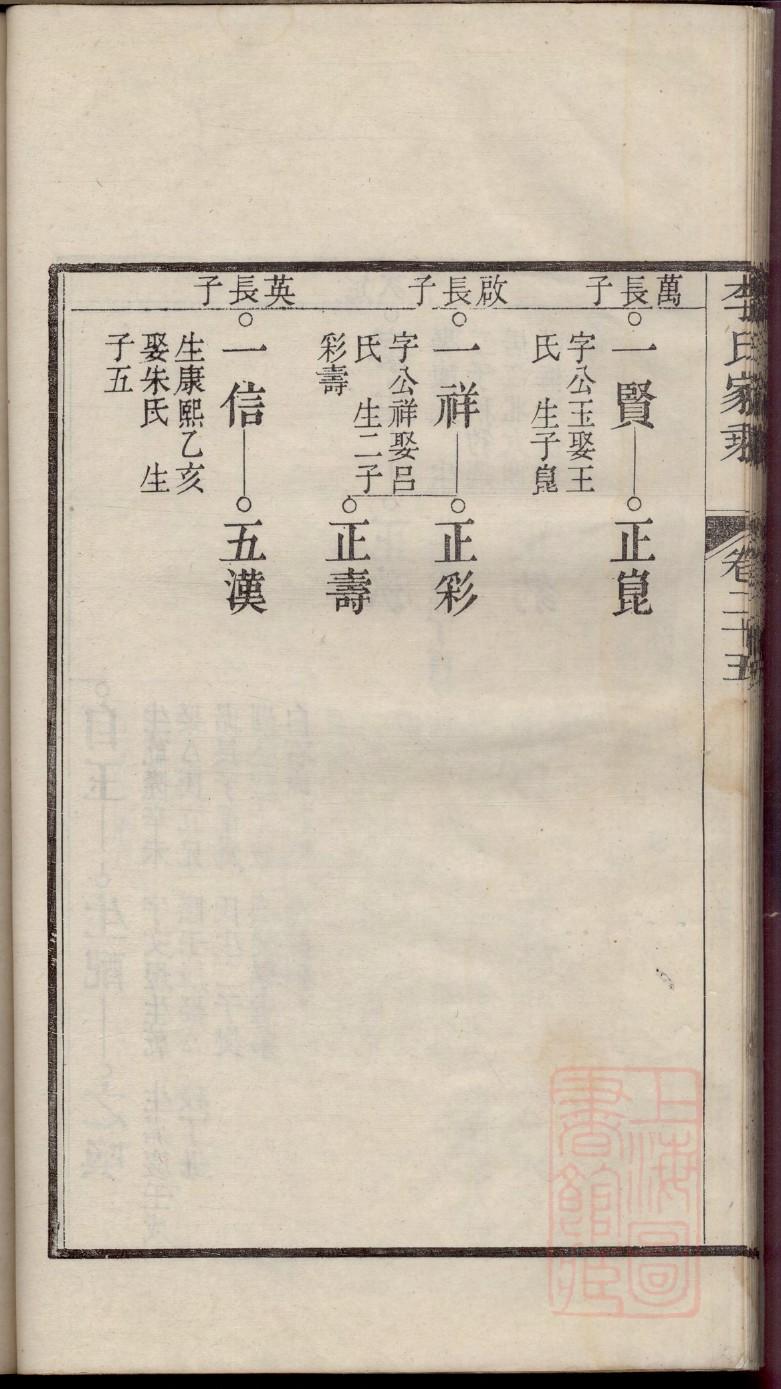 李氏家乘
卷二十五
萬長子
一賢
字公玉娶王
氏 生子崑
正崑
啟長子
一祥
字公祥娶呂
氏 生二子
彩壽
正彩
正壽
英長子
一信
生康熙乙亥
娶朱氏 生
子五
五漢
上海圖
書館藏